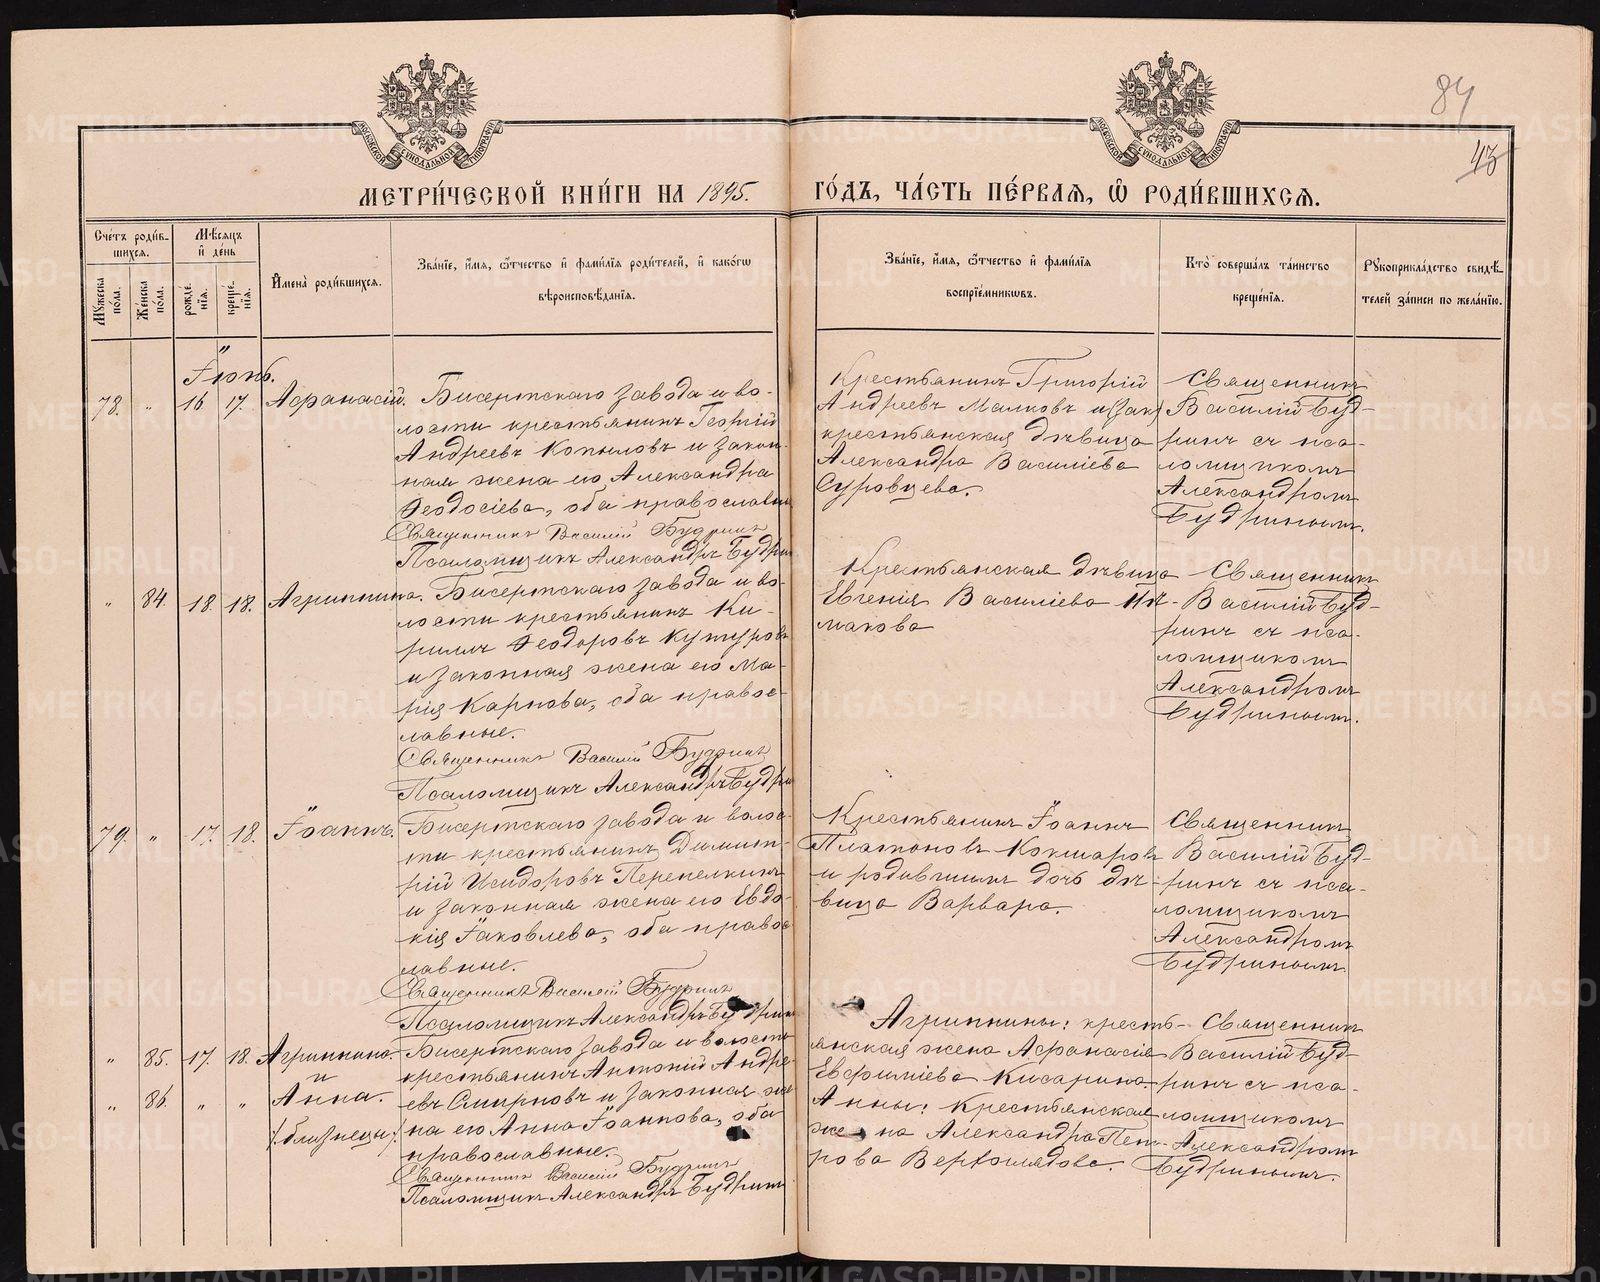 84
43
МОСКОВСКОЙ СѴНОДАЛЬНОЙ ТИПОГРАФІИ
МОСКОВСКОЙ СѴНОДАЛЬНОЙ ТИПОГРАФІИ
МЕТРИ́ЧЕСКОЙ КНИ́ГИ НА 1895. ГО́ДЪ, ЧА́СТЬ ПЕ́РВАѦ, Ѡ҆ РОДИ́ВШИХСѦ.
Сче́тъ роди́в-
шихсѧ.
Мѣ́сѧцъ
и҆ де́нь
Мꙋ́жеска
по́ла.
Же́нска
по́ла.
рожде́-
нїѧ.
креще́-
нїѧ.
И҆мена̀ роди́вшихсѧ.
Зва́нїе, и҆́мѧ, ѻ҆́тчество и҆ фами́лїѧ роди́телей, и҆ како́гѡ
вѣроисповѣ́данїѧ.
Зва́нїе, и҆́мѧ, ѻ҆́тчество и҆ фами́лїѧ
воспрїе́мникѡвъ.
Кто̀ соверша́лъ та́инство
креще́нїѧ.
Рꙋкоприкла́дство свидѣ́-
телей за́писи по жела́нїю.
Іюнь.
78. " 16 17. Аѳанасій.
Бисертскаго завода и во-
лости крестьянинъ Георгій
Андреевъ Копыловъ и закон-
ная жена его Александра
Ѳеодосіева, оба православн
Священникъ Василій Будринъ
Псаломщикъ Александръ Будри
Крестьянинъ Григорій
Андреевъ Малковъ и
крестьянская дѣвица
Александра Василіева
Суровцева.
Священникъ
Василій Буд-
ринъ съ пса-
ломщикомъ
Александромъ
Будринымъ.
" 84. 18. 18. Агриппина.
Бисертскаго завода и во-
лости крестьянинъ Ки-
риллъ Ѳеодоровъ Кутуровъ
и законная жена его Ма-
рія Карпова, оба правос-
лавные.
Священникъ Василій Будринъ
Псаломщикъ Александръ Будри
Крестьянская дѣвица
Евгенія Василіева
макова
Священникъ
Василій Буд-
ринъ съ пса-
ломщикомъ
Александромъ
Будринымъ.
79. " 17. 18. Іоаннъ.
Бисертскаго завода и волос-
ти крестьянинъ Димит-
рій Исидоровъ Перепелкинъ
и законная жена его Евдо-
кія Іаковлева, оба правос-
лавные.
Священникъ Василій Будринъ
Псаломщикъ Александръ Будрин
Крестьянинъ Іоаннъ
Платоновъ Кокшаровъ
и родившихъ дочь дѣ-
вица Варвара.
Священникъ
Василій Буд-
ринъ съ пса-
ломщикомъ
Александромъ
Будринымъ
" 85. 17. 18. Агриппина
и
" 86. " " Анна.
/близнецы/
Бисертскаго завода и волости
крестьянинъ Антоній Андре-
евъ Смирновъ и законная же
на его Анна Іоаннова, оба
православные.
Священникъ Василій Будринъ
Псаломщикъ Александръ Будринъ
Агриппины: кресть-
янская жена Аѳанасія
Евфиміева Кисарина.
Анны: Крестьянская
жена Александра Пет-
рова
Священникъ
Василій Буд-
ринъ съ пса-
ломщикомъ
Александромъ
Будринымъ.
METRIKI.GASO-URAL.RU